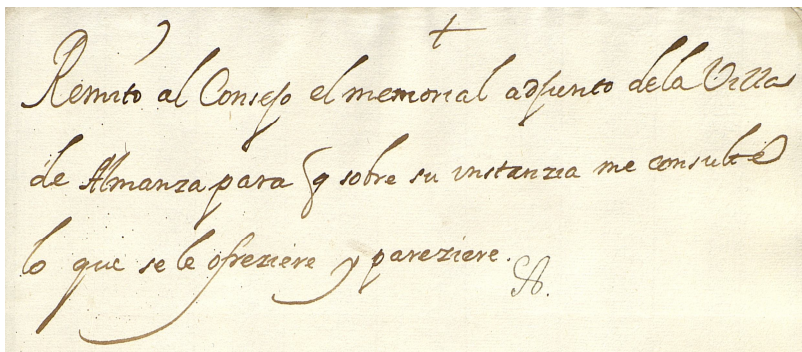 +
Remito al Consejo el memorial adjunto dela Villa
de Almanza para q sobre su instanzia me consulte
lo que se le ofreziere y pareziere.